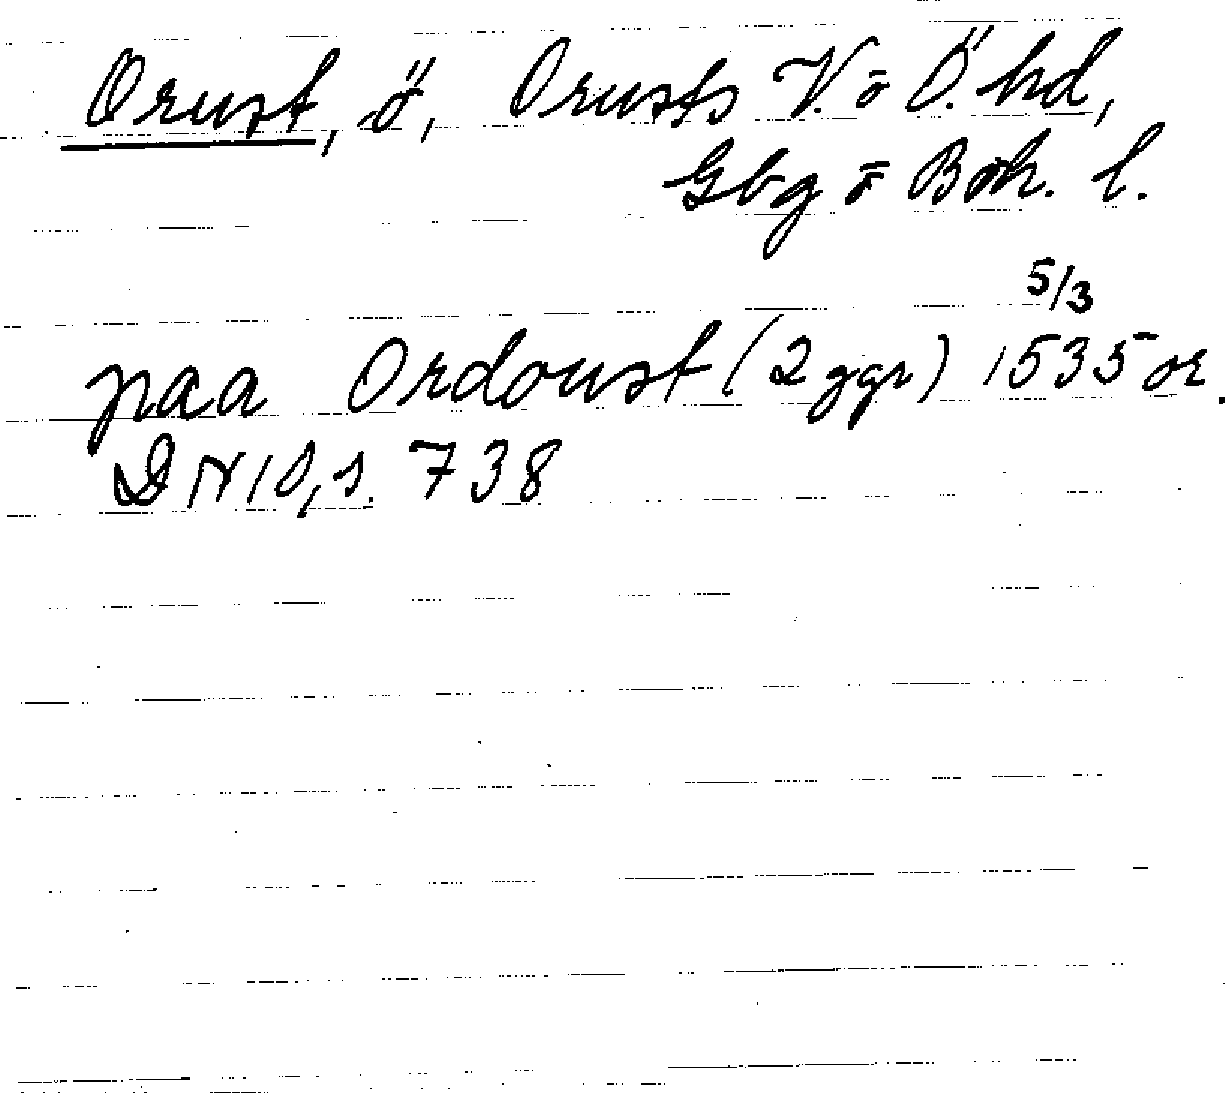 Orust, ö, Orusts V. o Ö. hd,
Gbg o Boh. l.
5/3
paa Ordoust (2 ggr) 1535 or.
DN 10, s. 738